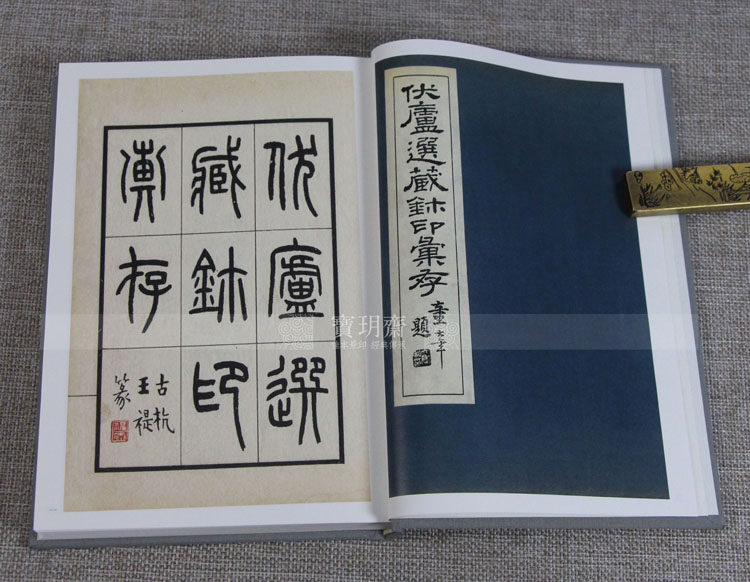 伏廬選藏鉥印彙存
童大年
題
伏廬選
臧鉥印
彙存
古杭
王禔
篆
寶玥齋